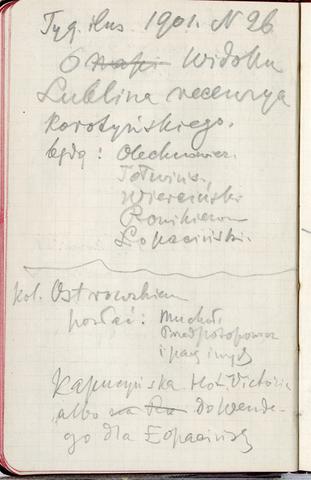 Tyg. ilus. 1901. N 26
O ~~mapi~~ Widoku
Lublina recenzya
Korotyńskiego.
będą: Olechnowicz.
Tołwińs.
Wierciński
Ronikierow
Łopaciński.
kol. Ostrowskiem
posłać: Muchoł.
Przedpotopowca
i parę innych
Kapucyńska Hot. Victoria
albo do Wende-
go dla Łopacińsk